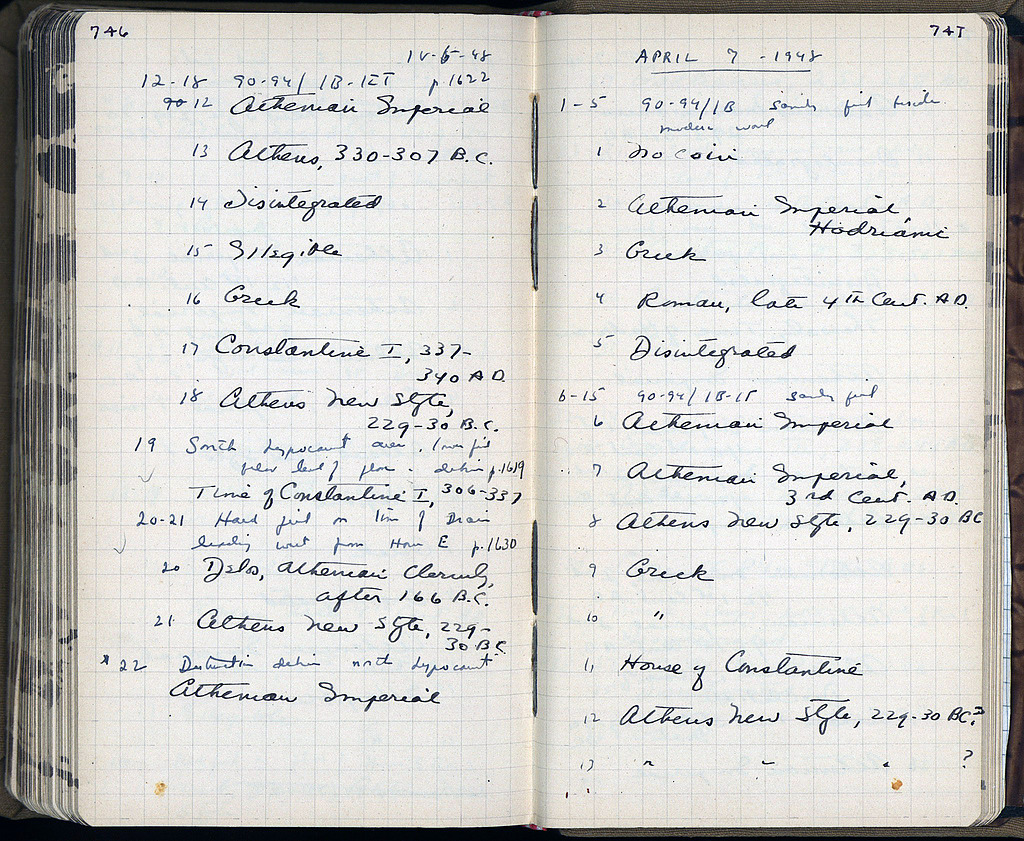 746
IV-6-48
12-18 90-94/IB-IET p.1622
12 Athenian Imperial
13 Athens, 330-307 B.C.
14 Disintegrated
15 Illegible
16 Greek
17 Constantine I, 337-
340 A.D.
18 Athens New Style,
229-30 B.C.
19 South hypocaust area, lower fill
below level of floor - debris p.1619
Time of Constantine I, 306-337
20-21 Hard fill on line of Drain
leading west from House E p.1630
20 Delos, Athenian Cleruchy,
after 166 B.C.
21 Athens New Style, 229-
30 B.C.
22 Destruction debris north hypocaust
Athenian Imperial
747
APRIL 7 - 1948
1-5 90-94/IB sandy fill beside
modern wall
1 No coin
2 Athenian Imperial,
Hadrianic
3 Greek
4 Roman, late 4th Cent. A.D.
5 Disintegrated
6-15 90-94/IB- sandy fill
6 Athenian Imperial
7 Athenian Imperial,
3rd Cent. A.D.
8 Athens New Style, 229-30 BC
9 Greek
10 "
11 House of Constantine
12 Athens New Style, 229-30 BC?
13 " " " ?